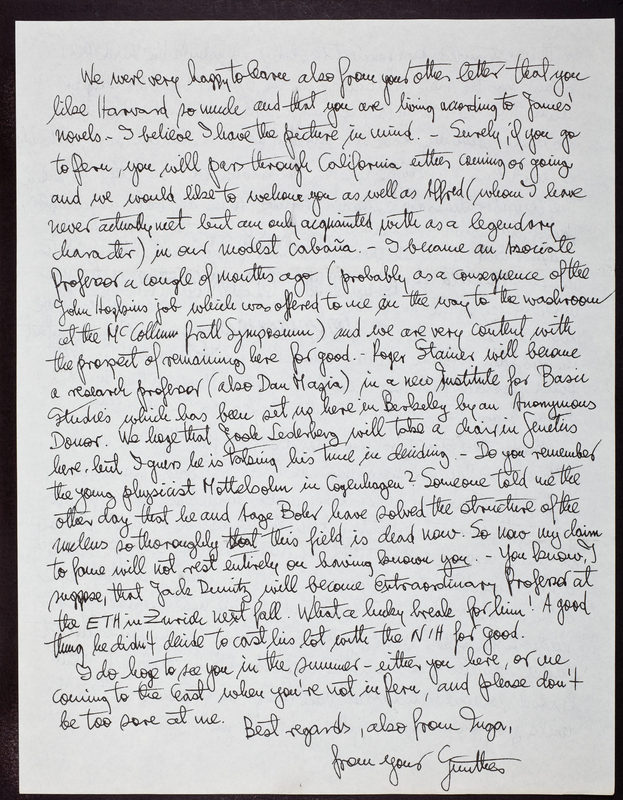 We were very happy to learn also from your other letter that you
like Harvard so much and that you are living according to James'
novels. - I believe I have the picture in mind. - Surely, if you go
to Peru, you will pass through California either coming or going
and we would like to welcome you as well as Alfred (whom I have
never actually met but am only acquainted with as a legendary
character) in our modest cabaña. - I became an Associate
Professor a couple of months ago (probably as a consequence of the
John Hopkins job which was offered to me on the way to the washroom
at the McCollum Pratt Symposium) and we are very content with
the prospect of remaining here for good. - Roger Stanier will become
a research professor (also Dan Mazia) in a new Institute for Basic
Studies which has been set up here in Berkeley by an Anonymous
Donor. We hope that Josh Lederberg will take a chair in Genetics
here, but I guess he is taking his time in deciding. - Do you remember
the young physicist Mottelsohn in Copenhagen? Someone told me the
other day that he and Aage Bohr have solved the structure of the
nucleus so thoroughly that this field is dead now. So now my claim
to fame will not rest entirely on having known you. - You know, I
suppose, that Jack Dunitz will become Extraordinary Professor at
the ETH in Zurich next fall. What a lucky break for him! A good
thing he didn't decide to cast his lot with the NIH for good.
I do hope to see you in the summer - either you here, or me
coming to the East when you're not in Peru, and please don't
be too sore at me.
Best regards, also from Inga,
from your Gunther